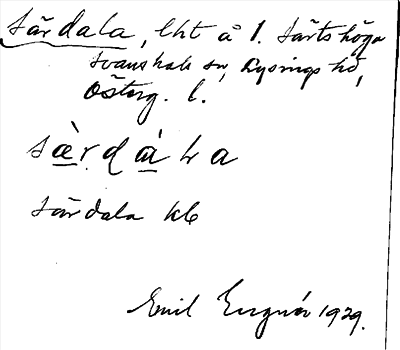 Särdala, lht å 1. Särtshöga
Svanshals sn, Lysings hd,
Österg. l.
sæ̀r.dàLa
Särdala kb
Emil 1929.